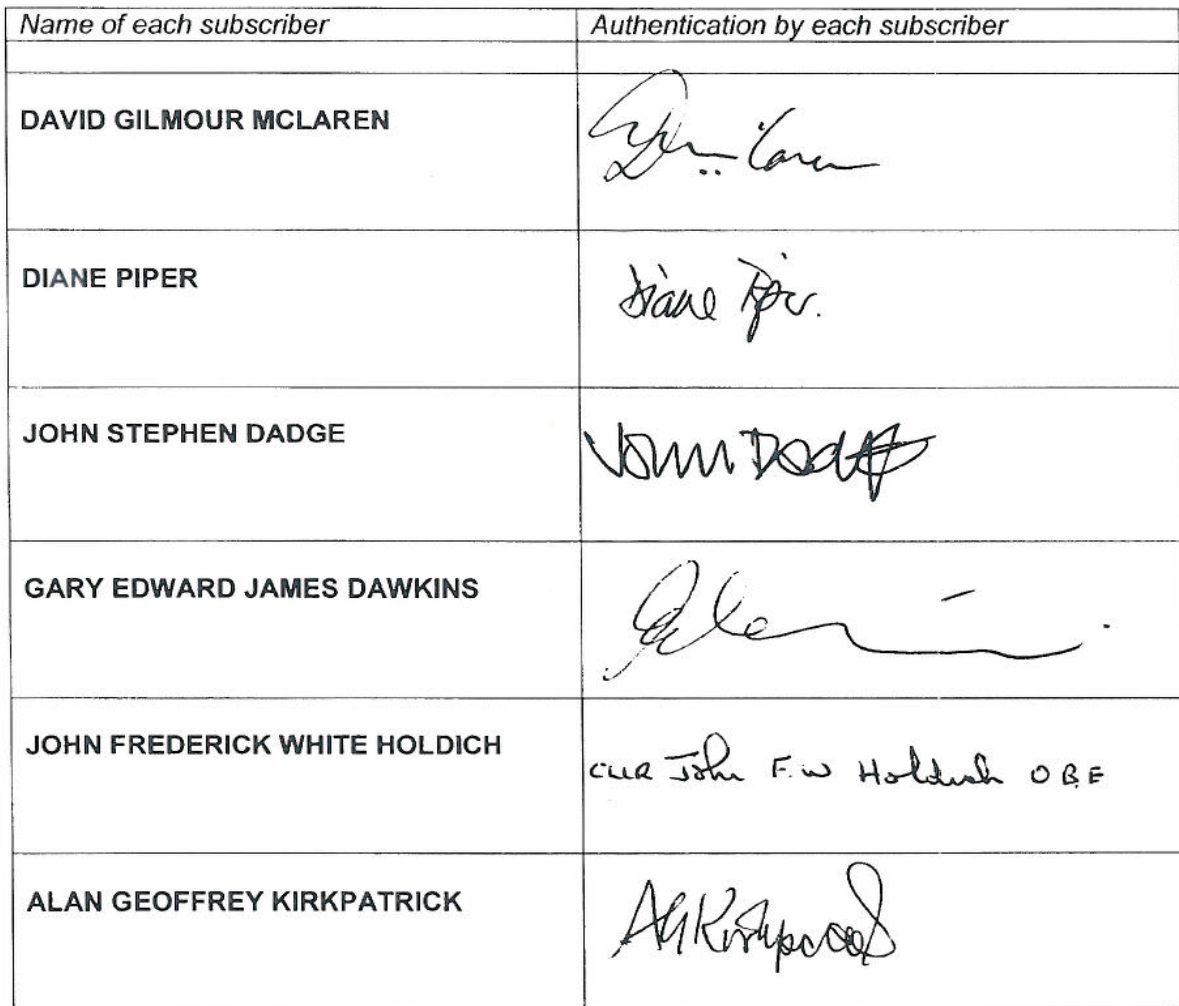 Name of each subscriber
Authentication by each subscriber
DAVID GILMOUR MCLAREN
DIANE PIPER
Diane Piper.
JOHN STEPHEN DADGE
John Dadge
GARY EDWARD JAMES DAWKINS
JOHN FREDERICK WHITE HOLDICH
CLLR John F.W Holdich OBE
ALAN GEOFFREY KIRKPATRICK